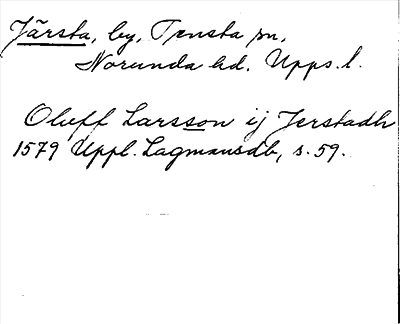 Järsta, by, Tensta sn,
Norunda hd. Upps. l.
Oluff Larsson ij Jerstadh
1579 Uppl. Lagmansdb, s. 59.